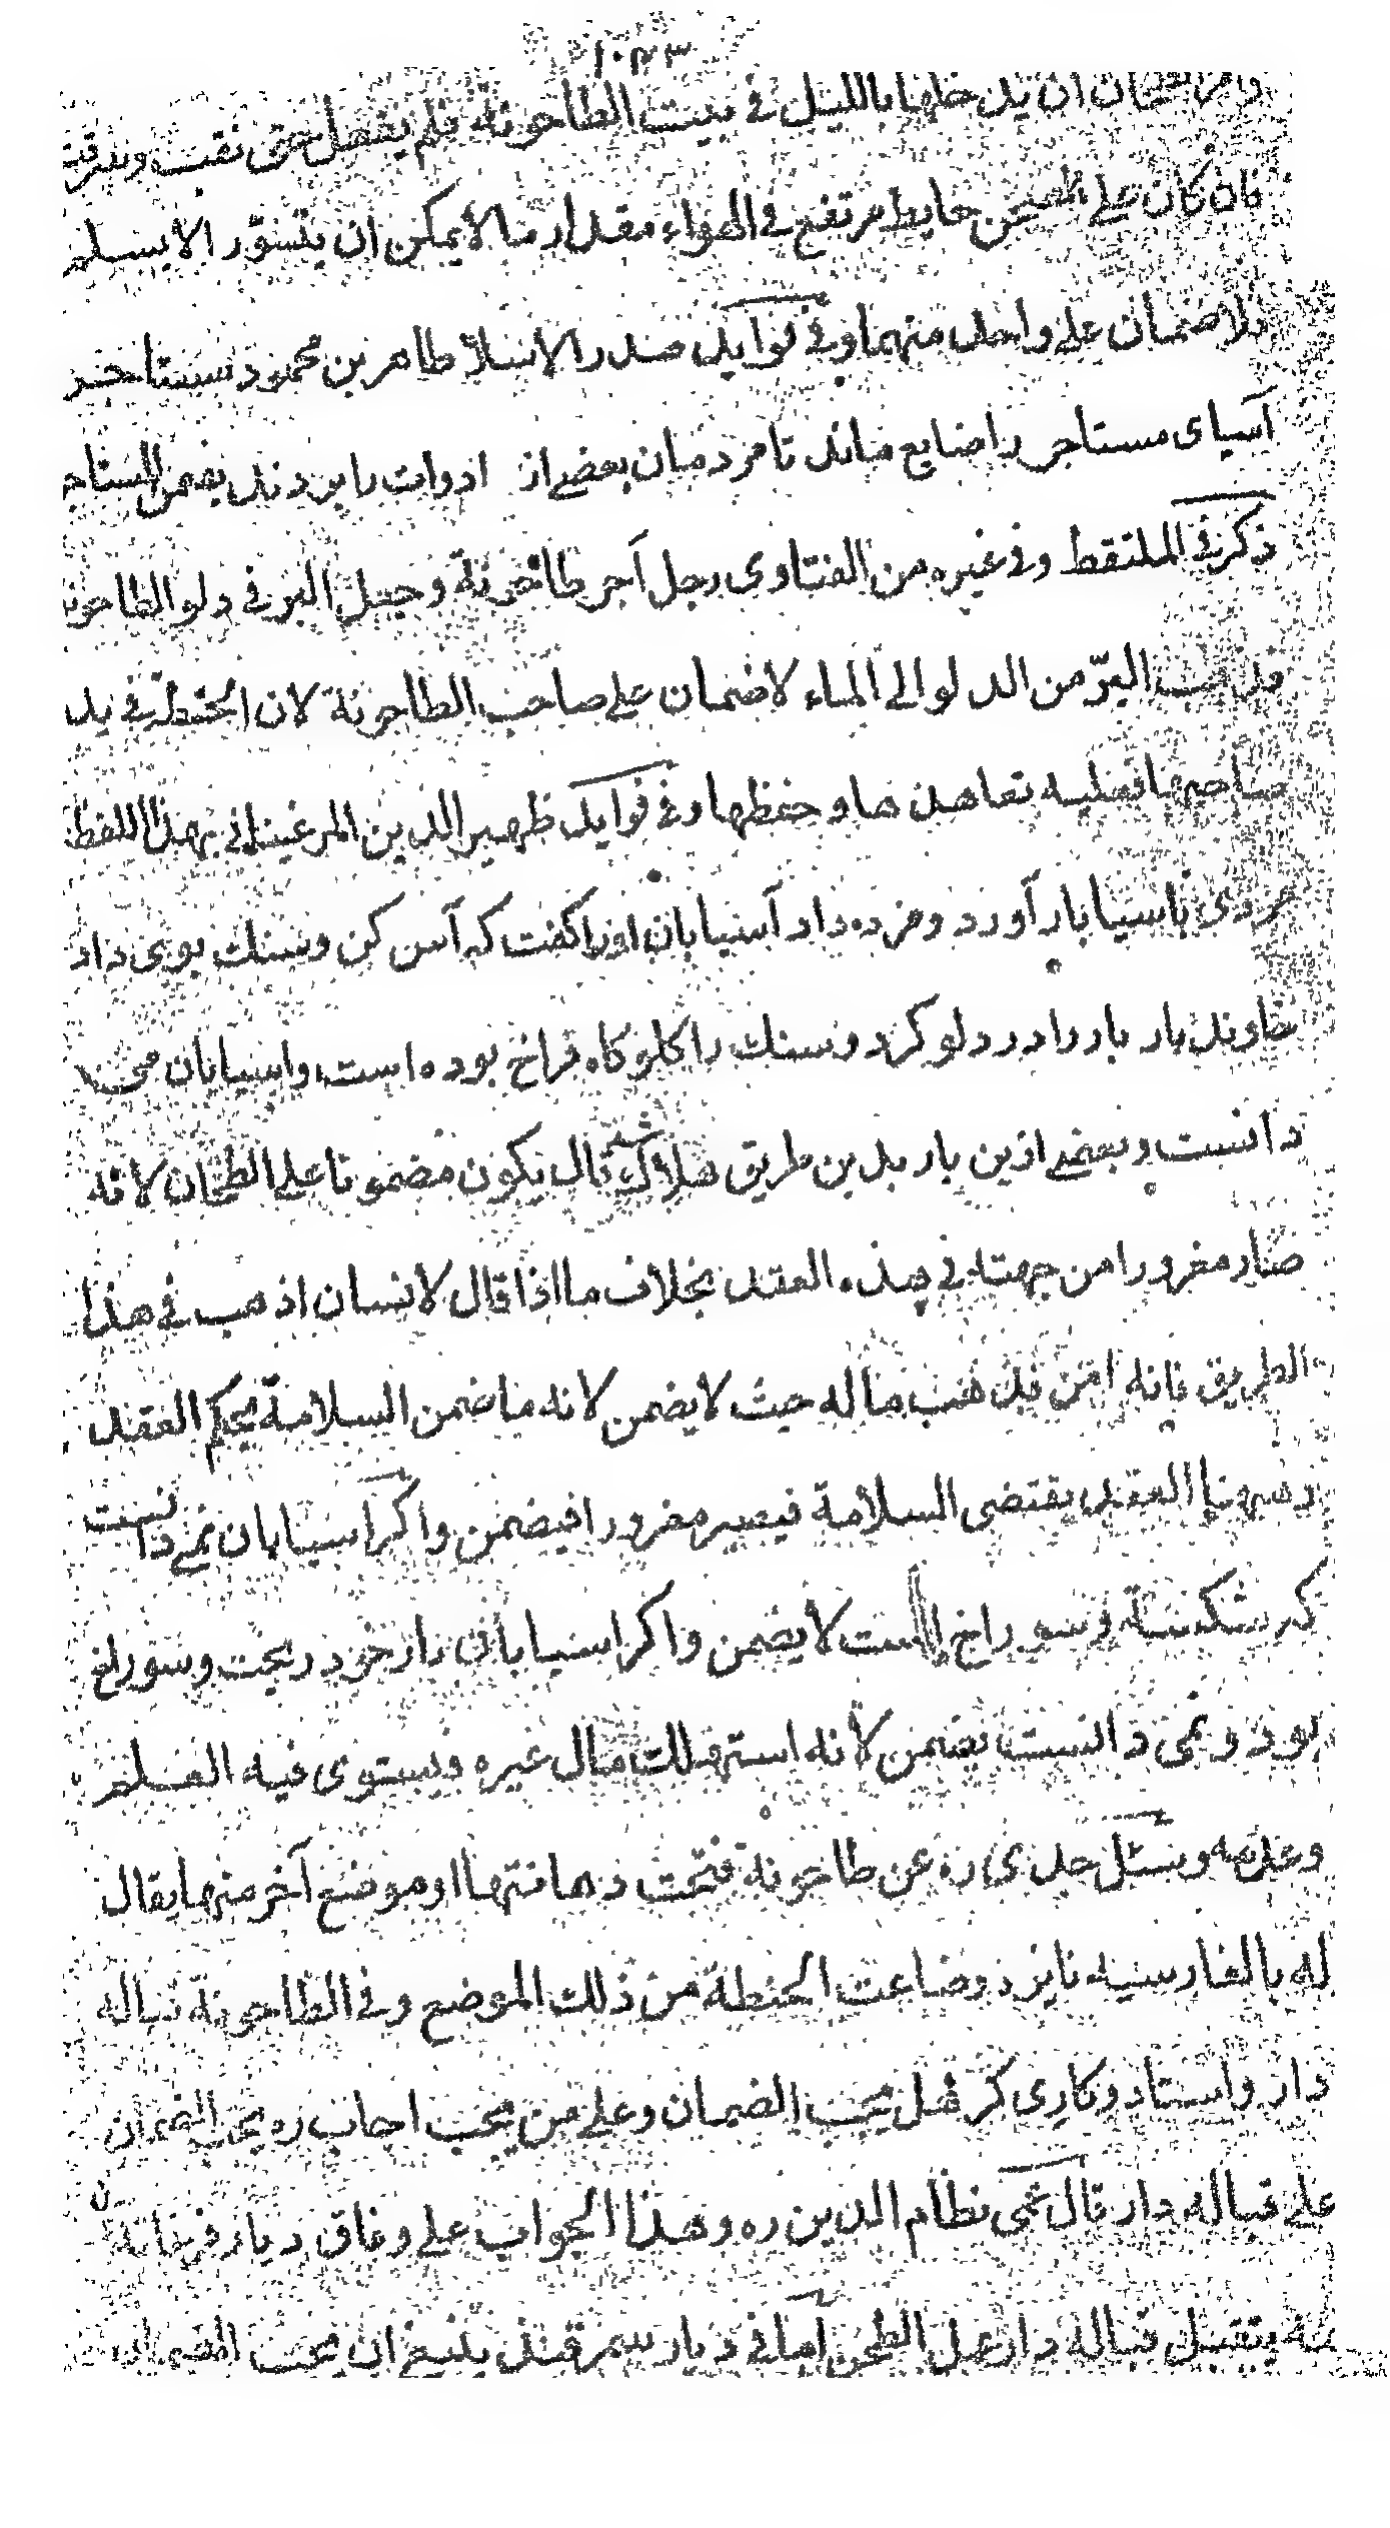 ١٠٣٣
وامر الطحان ان يدخلها بالليل في بيت الطاحونة فلم يفعل حتى نقب وسرقت
فان كان على الصحن حايط مرتفع في الهواء مقدار ما لا يمكن ان يتسور الا بسلم
فلا ضمان على واحد منهما وفي فوايد صدر الاسلا طاهر بن محمود مستاجر
آسياى مستاجر را ضايع ماند تا مردمان بعضے از ادوات را بردند يضمن المستاجر
ذكر في الملتقط وفي غيره من الفتاوى رجل آجر طاحونة وجعل البر في دلو الطاحونة
فذهب البرّ من الدلو الى الماء لا ضمان على صاحب الطاحونة لان الحنطة في يد
صاحبها فعليه تعاهدها وحفظها وفي فوايد ظهير الدين المرغيناني بهذا اللفظ
مردى باسيا بار آورد ومزده داد آسيابان اورا كفت كه آس كن وسنك بوى داد
خاوند بار بار را در دلو كرد وسنك را كلوكاه فراخ بوده است واسيابان مى
دانست وبعضے ازين بار بدين طريق هلاك شد قال يكون مضمونا على الطحان لانه
صار مغرورا من جهته في هذه العقد بخلاف ما اذا قال لانسان اذهب في هذا
الطريق فانه امن فذهب ماله حيث لا يضمن لانه ما ضمن السلامة بحكم العقد
وههنا العقد يقتضى السلامة فيصير مغرورا فيضمن واكر اسيابان نمے دانست
كه شكسته وسوراخ است لا يضمن واكر اسيابان بار خود ريخت وسوراخ
بود ونمى دانست يضمن لانه استهلك مال غيره ويستوى فيه العلم
وعدمه وسئل جدى ره عن طاحونة فتحت دهانتها او موضع آخر منها يقال
له بالفارسيه نايزد وضاعت الحنطة من ذلك الموضع وفي الطاحونة قباله
دار واستاد وكارى كر هل يجب الضمان وعلى من يجب اجاب ره يجب الضمان
على قباله دار قال عمى نظام الدين ره وهذا الجواب على وفاق ديار فرغانة ن
يتقبل قباله دار عمل الطحن اما في ديار سمرقند ينبغ ان يجب الضمان